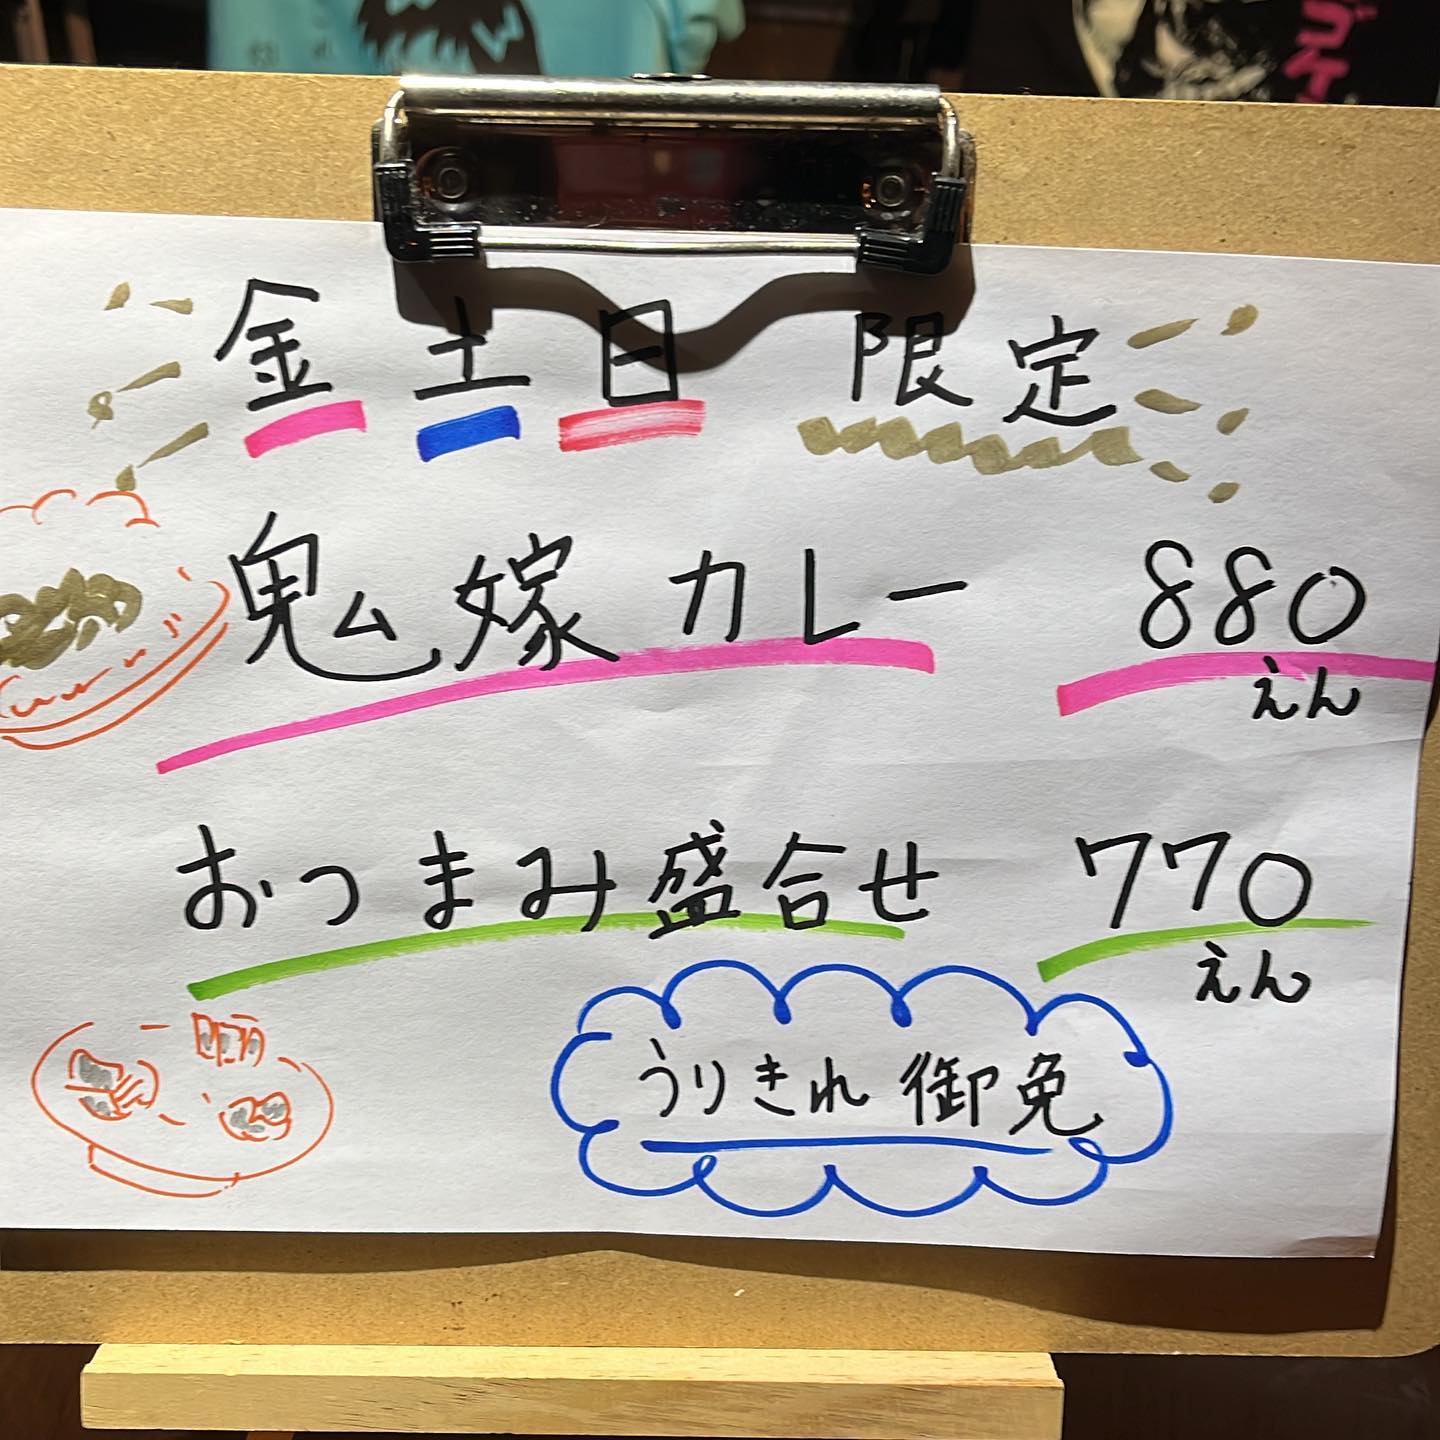 金 土 日 限定
鬼嫁カレー 880
えん
おつまみ盛合せ 770
えん
うりきれ御免